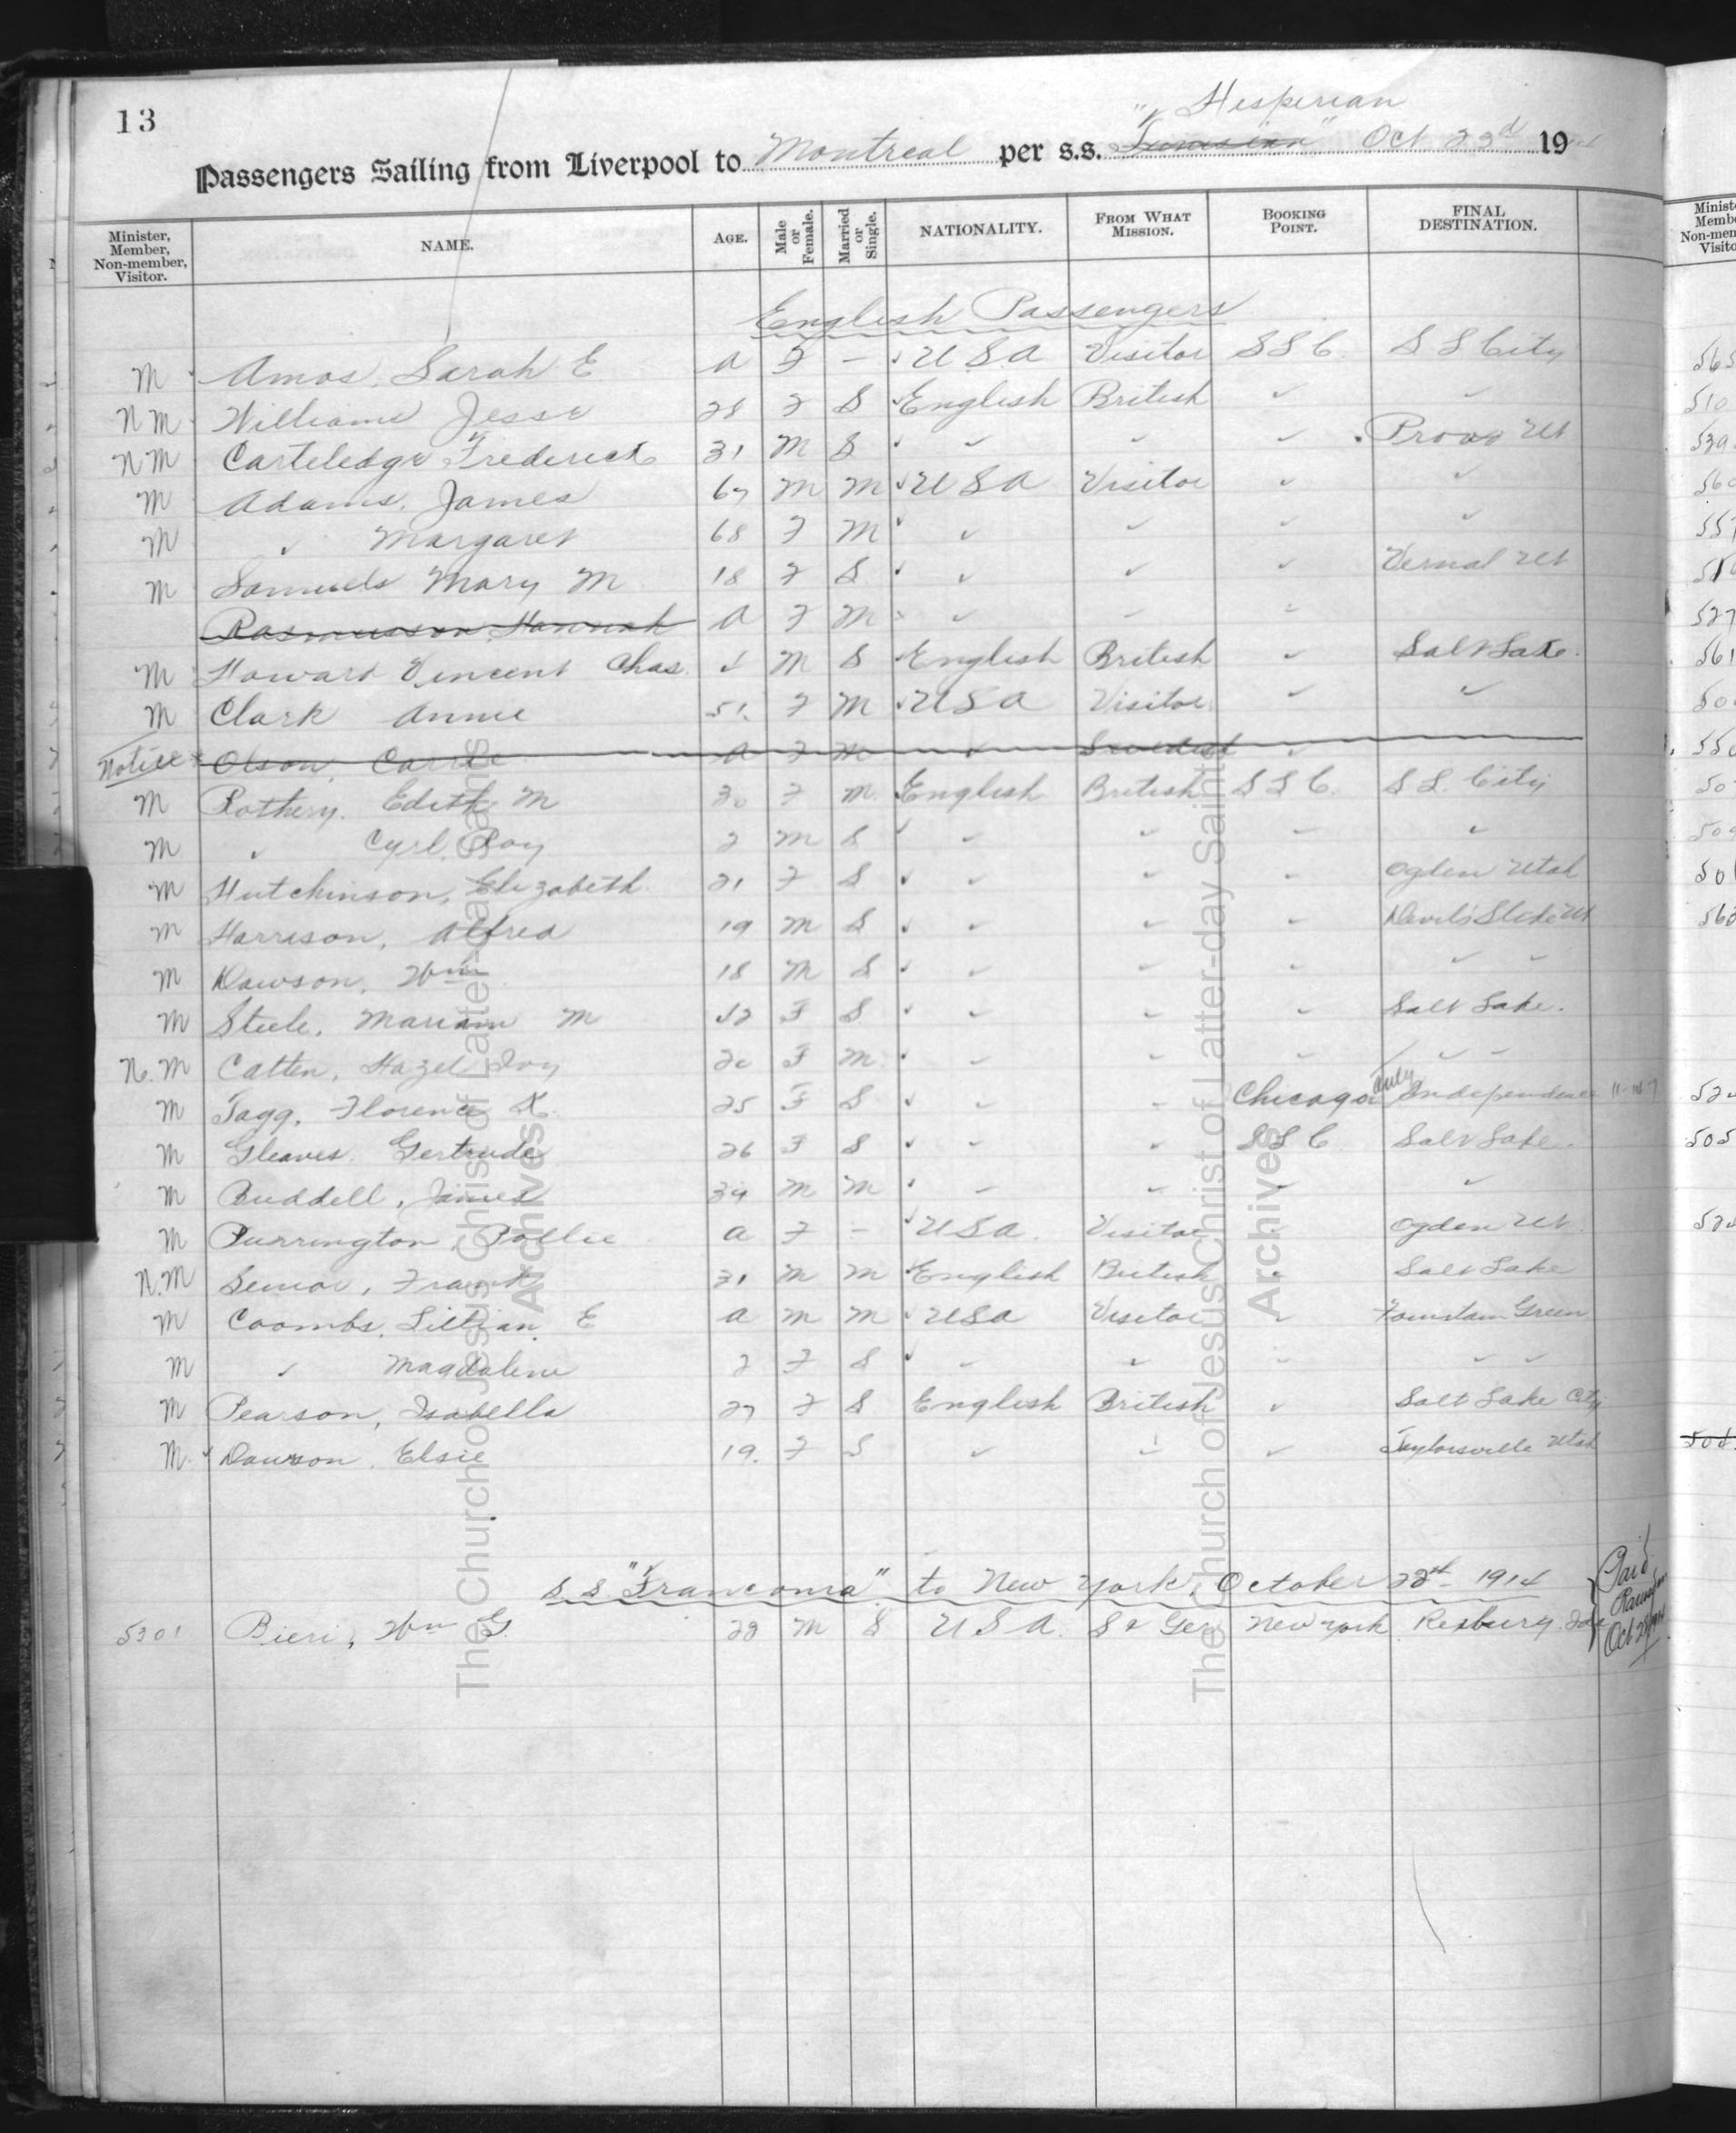 13
" Hesperian
Passengers Sailing from Liverpool to Montreal per s.s. Tunisian" Oct 23d 19
Minister, Member, Non-member, Visitor. NAME. AGE. Male or Female. Married or Single. NATIONALITY. FROM WHAT MISSION. BOOKING POINT. FINAL DESTINATION.
English Passengers
M Amos, Sarah E A F – ✓ U S A Visitor S S C. S S City
N M Williams Jesse 28 F S ✓ English British ✓ ✓
N M Carteledge Frederick 31 M S ✓ ✓ ✓ Provo Ut
M Adams, James 67 M M ✓ U S A Visitor ✓ ✓
M ✓ Margaret 68 F M ✓ ✓ ✓ ✓ ✓
M Samuels Mary M 18 F S ✓ ✓ ✓ ✓ Vernal Ut
Rasmusson, Hannah A F M ✓ ✓
M Howard Vincent Chas. 4 M S English British ✓ Salt Lake.
M Clark Annie 51. F M ✓ U S A Visitor. ✓ ✓
Notice Olson, Carrie A F M ✓ Swedish ✓
M Rothery, Edith M 30 F M. English British S L C. S L. City
M ✓ Cyrl Roy 2 M S ✓ ✓ ✓ ✓
M Hutchinson, Elizabeth. 21 F S ✓ ✓ ✓ ✓ Ogden Utah
M Harrison, Alfred 19 M S ✓ ✓ ✓ ✓ Devil's Slide Ut
M Dawson, Wm 18 M S ✓ ✓ ✓ ✓ ✓ ✓
M Steele, Mariam M 52 F S ✓ ✓ ✓ ✓ Salt Lake.
N. M Catten, Hazel Ivy 20 F M. ✓ ✓ ✓ ✓ ✓
M Tagg, Florence K. 25 F S ✓ ✓ ✓ Chicago only Independence
M Gleaves. Gertrude 26 F S ✓ ✓ ✓ S S C Salt Lake.
M Buddell, James 34 M M ✓ ✓ ✓ ✓ ✓
M Purrington, Pollie A F – ✓ U S A. Visitor ✓ Ogden Ut
N. M Senior, Frank 31 M M English British ✓ Salt Lake
M Coombs, Lillian E A M M ✓ U S A Visitor ✓ Fountain Green
M ✓ Magdalene 2 F S ✓ ✓ ✓ ✓ ✓ ✓
M Pearson, Isabella 27 F S English British ✓ Salt Lake City
M. ✓ Dawson, Elsie 19. F S ✓ ✓ ✓ Taylorsville Utah
S S "Franconia" to New York, October 28th 1914
5301 Bieri, Wm G 22 M S U S A. S & Ger New York Rexburg. Ida
Paid
The Church of Jesus Christ of Latter-day Saints
Archives
The Church of Jesus Christ of Latter-day Saints
Archives